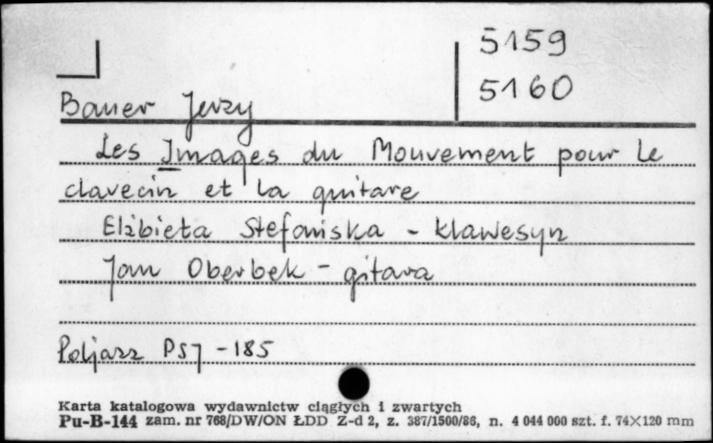 5159
5160
Bauer Jerzy
Les Images du Mouvement pour le
clavecin et la guitare
Elżbieta Stefańska - klawesyn
Jan Oberbek - gitara
Poljazz PSJ - 185
Karta katalogowa wydawnictw ciągłych i zwartych
Pu-B-144 zam. nr 768/DW/ON ŁDD Z-d 2, z. 387/1500/86, n. 4 044 000 szt. f. 74×120 mm